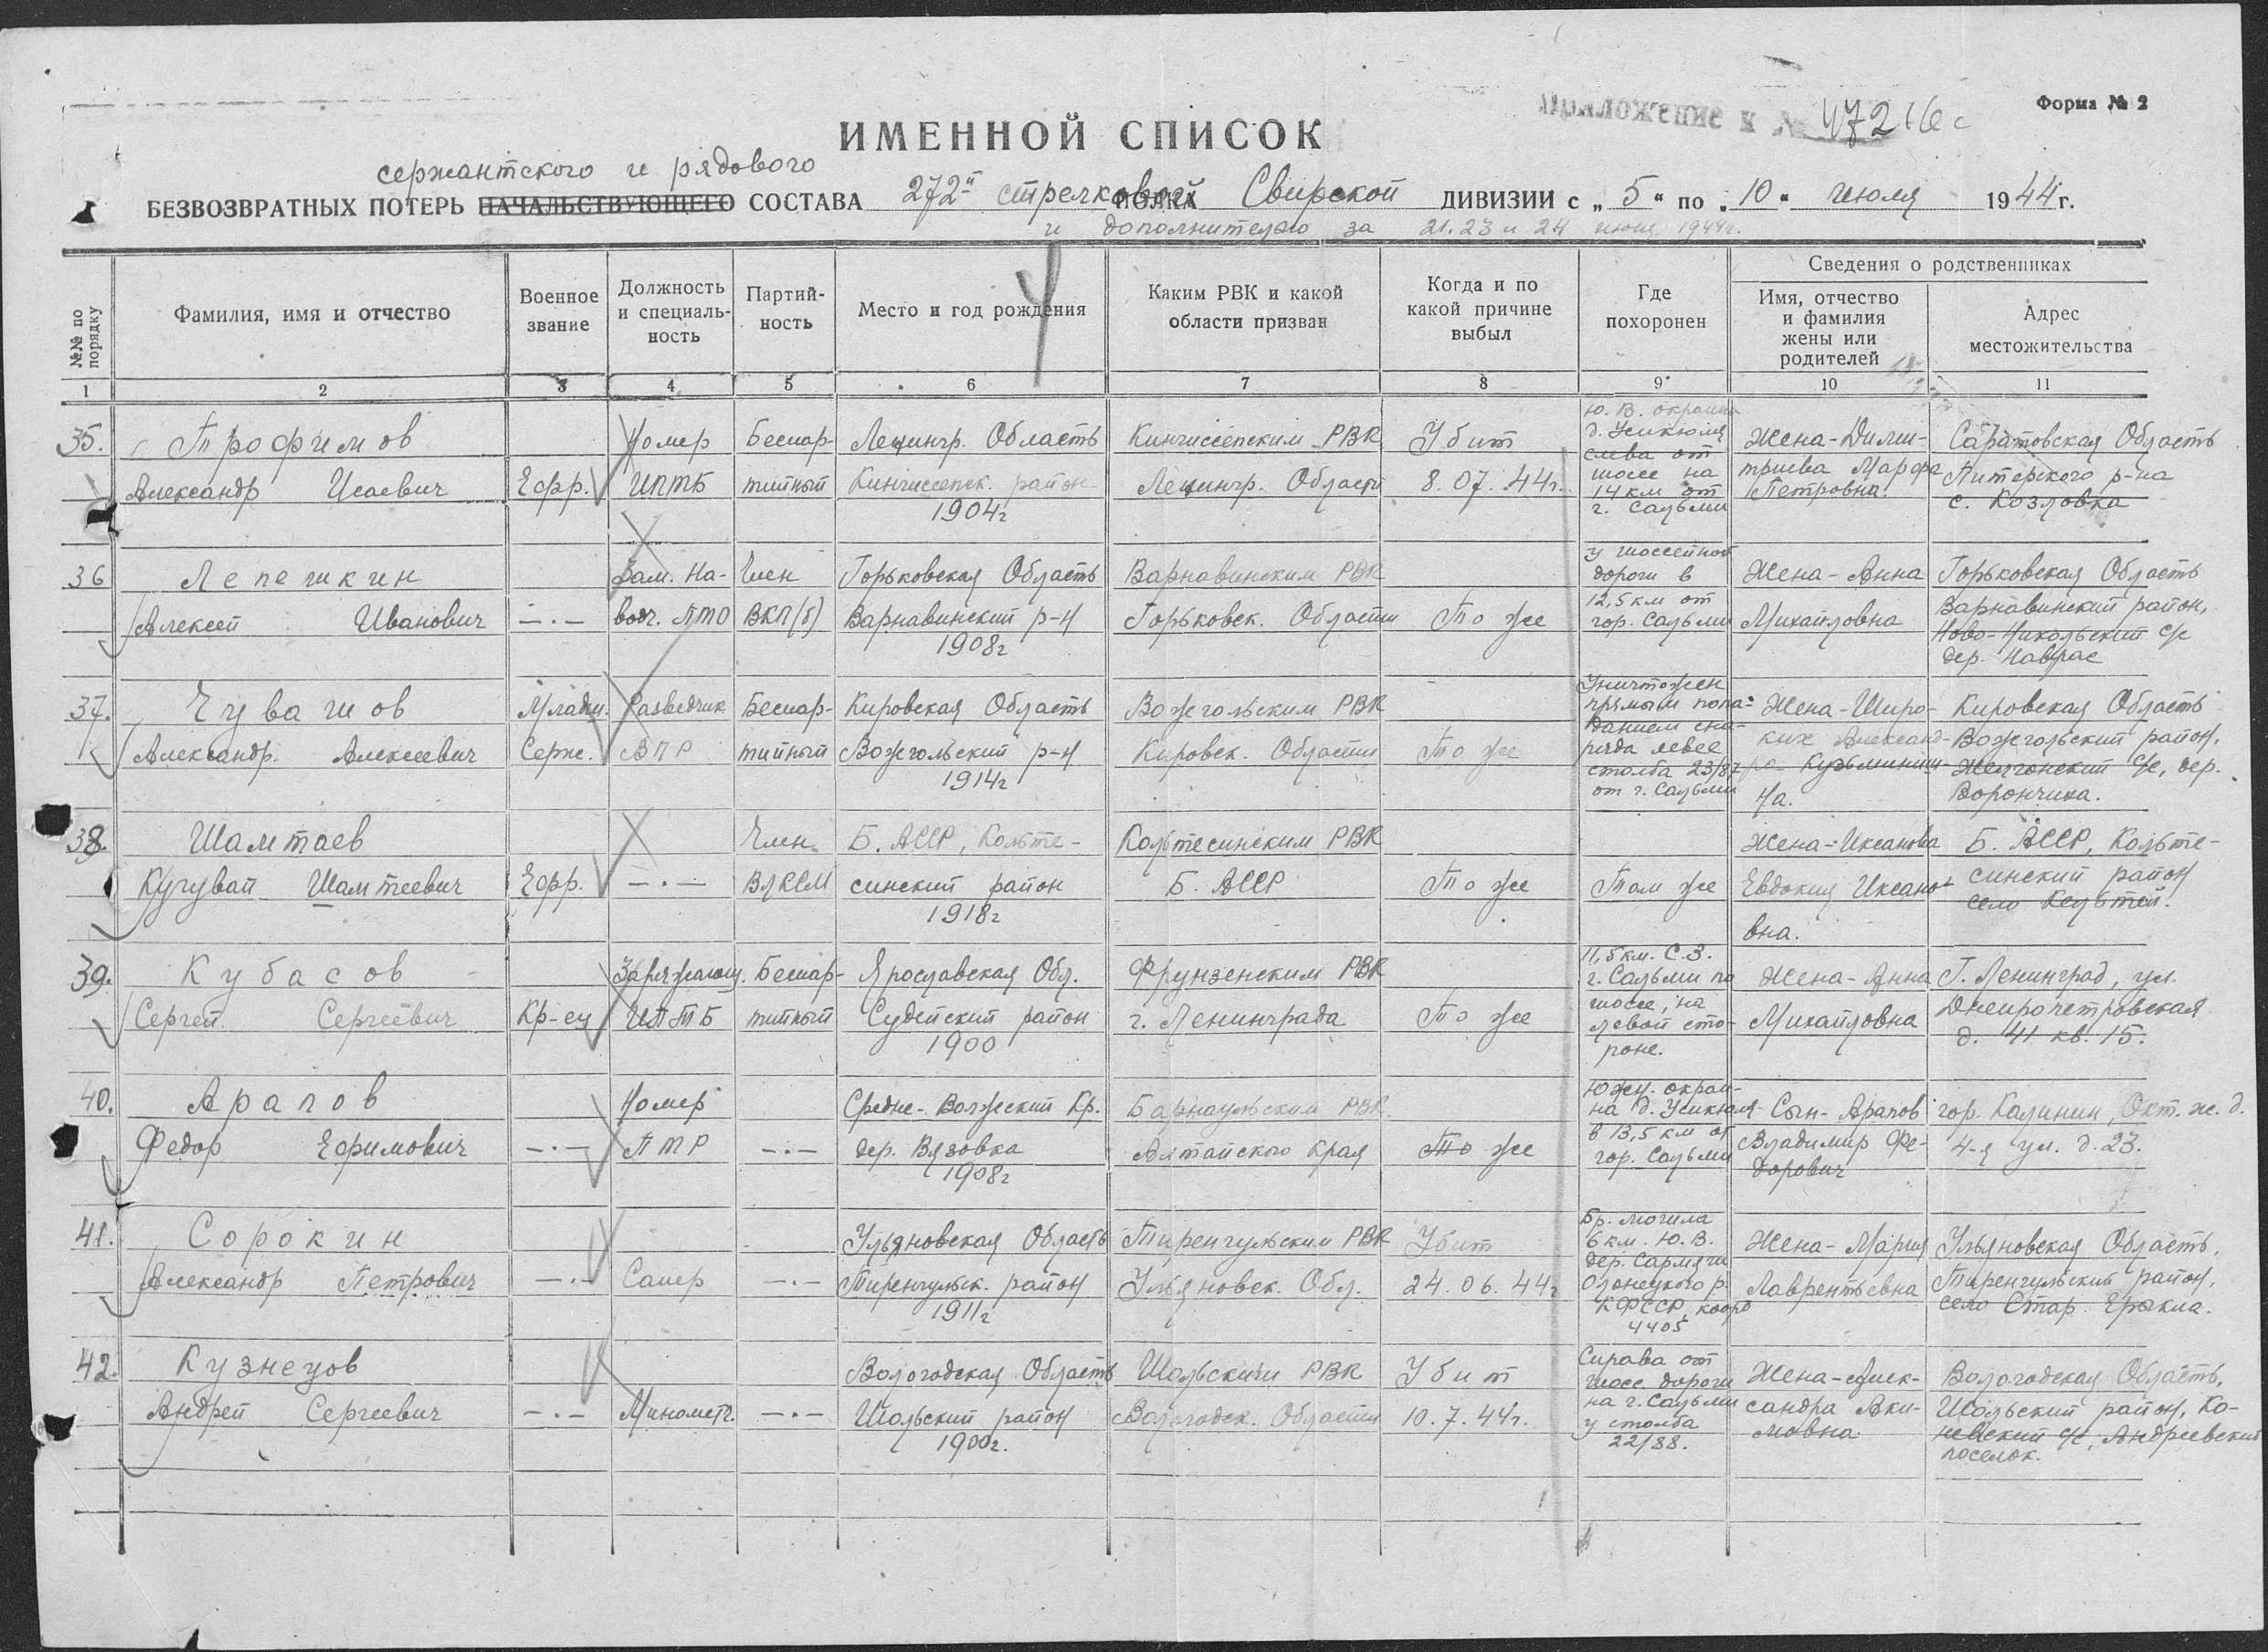 Приложение к № 47216с
Форма № 2
ИМЕННОЙ СПИСОК
сержантского и рядового
БЕЗВОЗВРАТНЫХ ПОТЕРЬ НАЧАЛЬСТВУЮЩЕГО СОСТАВА 272й стрелковой Свирской ДИВИЗИИ с „5“ по „10“ июля 1944 г.
и дополнительно за 21.23 и 24 июня 1944г.
№№ по порядку
Фамилия, имя и отчество
Военное звание
Должность и специальность
Партийность
Место и год рождения
Каким РВК и какой области призван
Когда и по какой причине выбыл
Где похоронен
Сведения о родственниках
Имя, отчество и фамилия жены или родителей
Адрес местожительства
1 2 3 4 5 6 7 8 9 10 11
35. Трофимов Номер Беспар- Ленингр. Область Кингиссепским РВК Убит
Александр Исаевич Ефр. ИПТБ тийный Кингиссепск. район Ленингр. Области 8.07.44г.
1904г
Ю.В. окраина
д. Уиксюля
слева от
шоссе на
14 км от
г. Сальми
Жена-Дими-
триева Марфа
Петровна.
Саратовская Область
Питерского р-на
с. Козловка
36 Лепешкин Зам. На- Член Горьковская Область Варнавинским РВК
Алексей Иванович —·— водч. ПТО ВКП(б) Варнавинский р-н Горьковск. Области То же
1908г
у шоссейной
дороги в
12,5 км от
гор. Сальми
Жена-Анна
Михайловна
Горьковская Область
Варнавинский район,
Ново-Никольский с/с
дер. Наврас
37. Чувашов Младш. Разведчик Беспар- Кировская Область Вожгольским РВК
Александр Алексеевич Серж. ВПР тийный Вожгольский р-н Кировск. Области То же
1914г
Уничтожен
прямым попа-
данием сна-
ряда левее
столба 23/87
от г. Сальми
Жена-Широ-
ких Александ-
ра Кузьминиш-
на.
Кировская Область
Вожгольский район,
с/с, дер.
Ворончиха.
38. Шамтаев Член Б. АССР, Кольте- Кольтесинским РВК
Кугувай Шамтеевич Ефр. —·— ВЛКСМ синский район Б. АССР То же Там же
1918г
Жена-Иксанова
Евдокия Иксано-
вна.
Б. АССР, Кольте-
синский район
село Кельтей.
39. Кубасов Заряжающ. Беспар- Ярославская Обл. Фрунзенским РВК
Сергей Сергеевич Кр-ец ИПТБ тийный Судейский район г. Ленинграда То же
1900
11,5 км. С.З.
г. Сальми по
шоссе, на
левой сто-
роне.
Жена-Анна
Михайловна
Г. Ленинград, ул.
Днепропетровская
д. 41 кв. 15.
40. Арапов Номер Средне-Волжский Кр. Барнаульским РВК.
Федор Ефимович —·— ПТР —·— дер. Вязовка Алтайского края То же
1908г
Южн. окраи-
на д. Уиксюля
в 13,5 км от
гор. Сальми
Сын-Арапов
Владимир Фе-
дорович
гор. Калинин, Окт. ж. д.
4-я ул. д. 23.
41. Сорокин Ульяновская Область Тиренгульским РВК Убит
Александр Петрович —·— Сапер —·— Тиренгульск. район Ульяновск. Обл. 24.06.44г
1911г
Бр. могила
6 км. Ю.В.
дер. Сармяги
Олонецкого р.
КФССР, коорд
4405
Жена-Мария
Лаврентьевна
Ульяновская Область,
Тиренгульский район,
село Стар. Еракла.
42. Кузнецов Вологодская Область Шольским РВК Убит
Андрей Сергеевич —·— Минометч. —·— Шольский район Вологодск. Области 10.7.44г.
1900г.
Справа от
шосс. дороги
на г. Сальми
у столба
22/88.
Жена-Алек-
сандра Аки-
мовна
Вологодская Область,
Шольский район, Ко-
невский с/с, Андреевский
поселок.